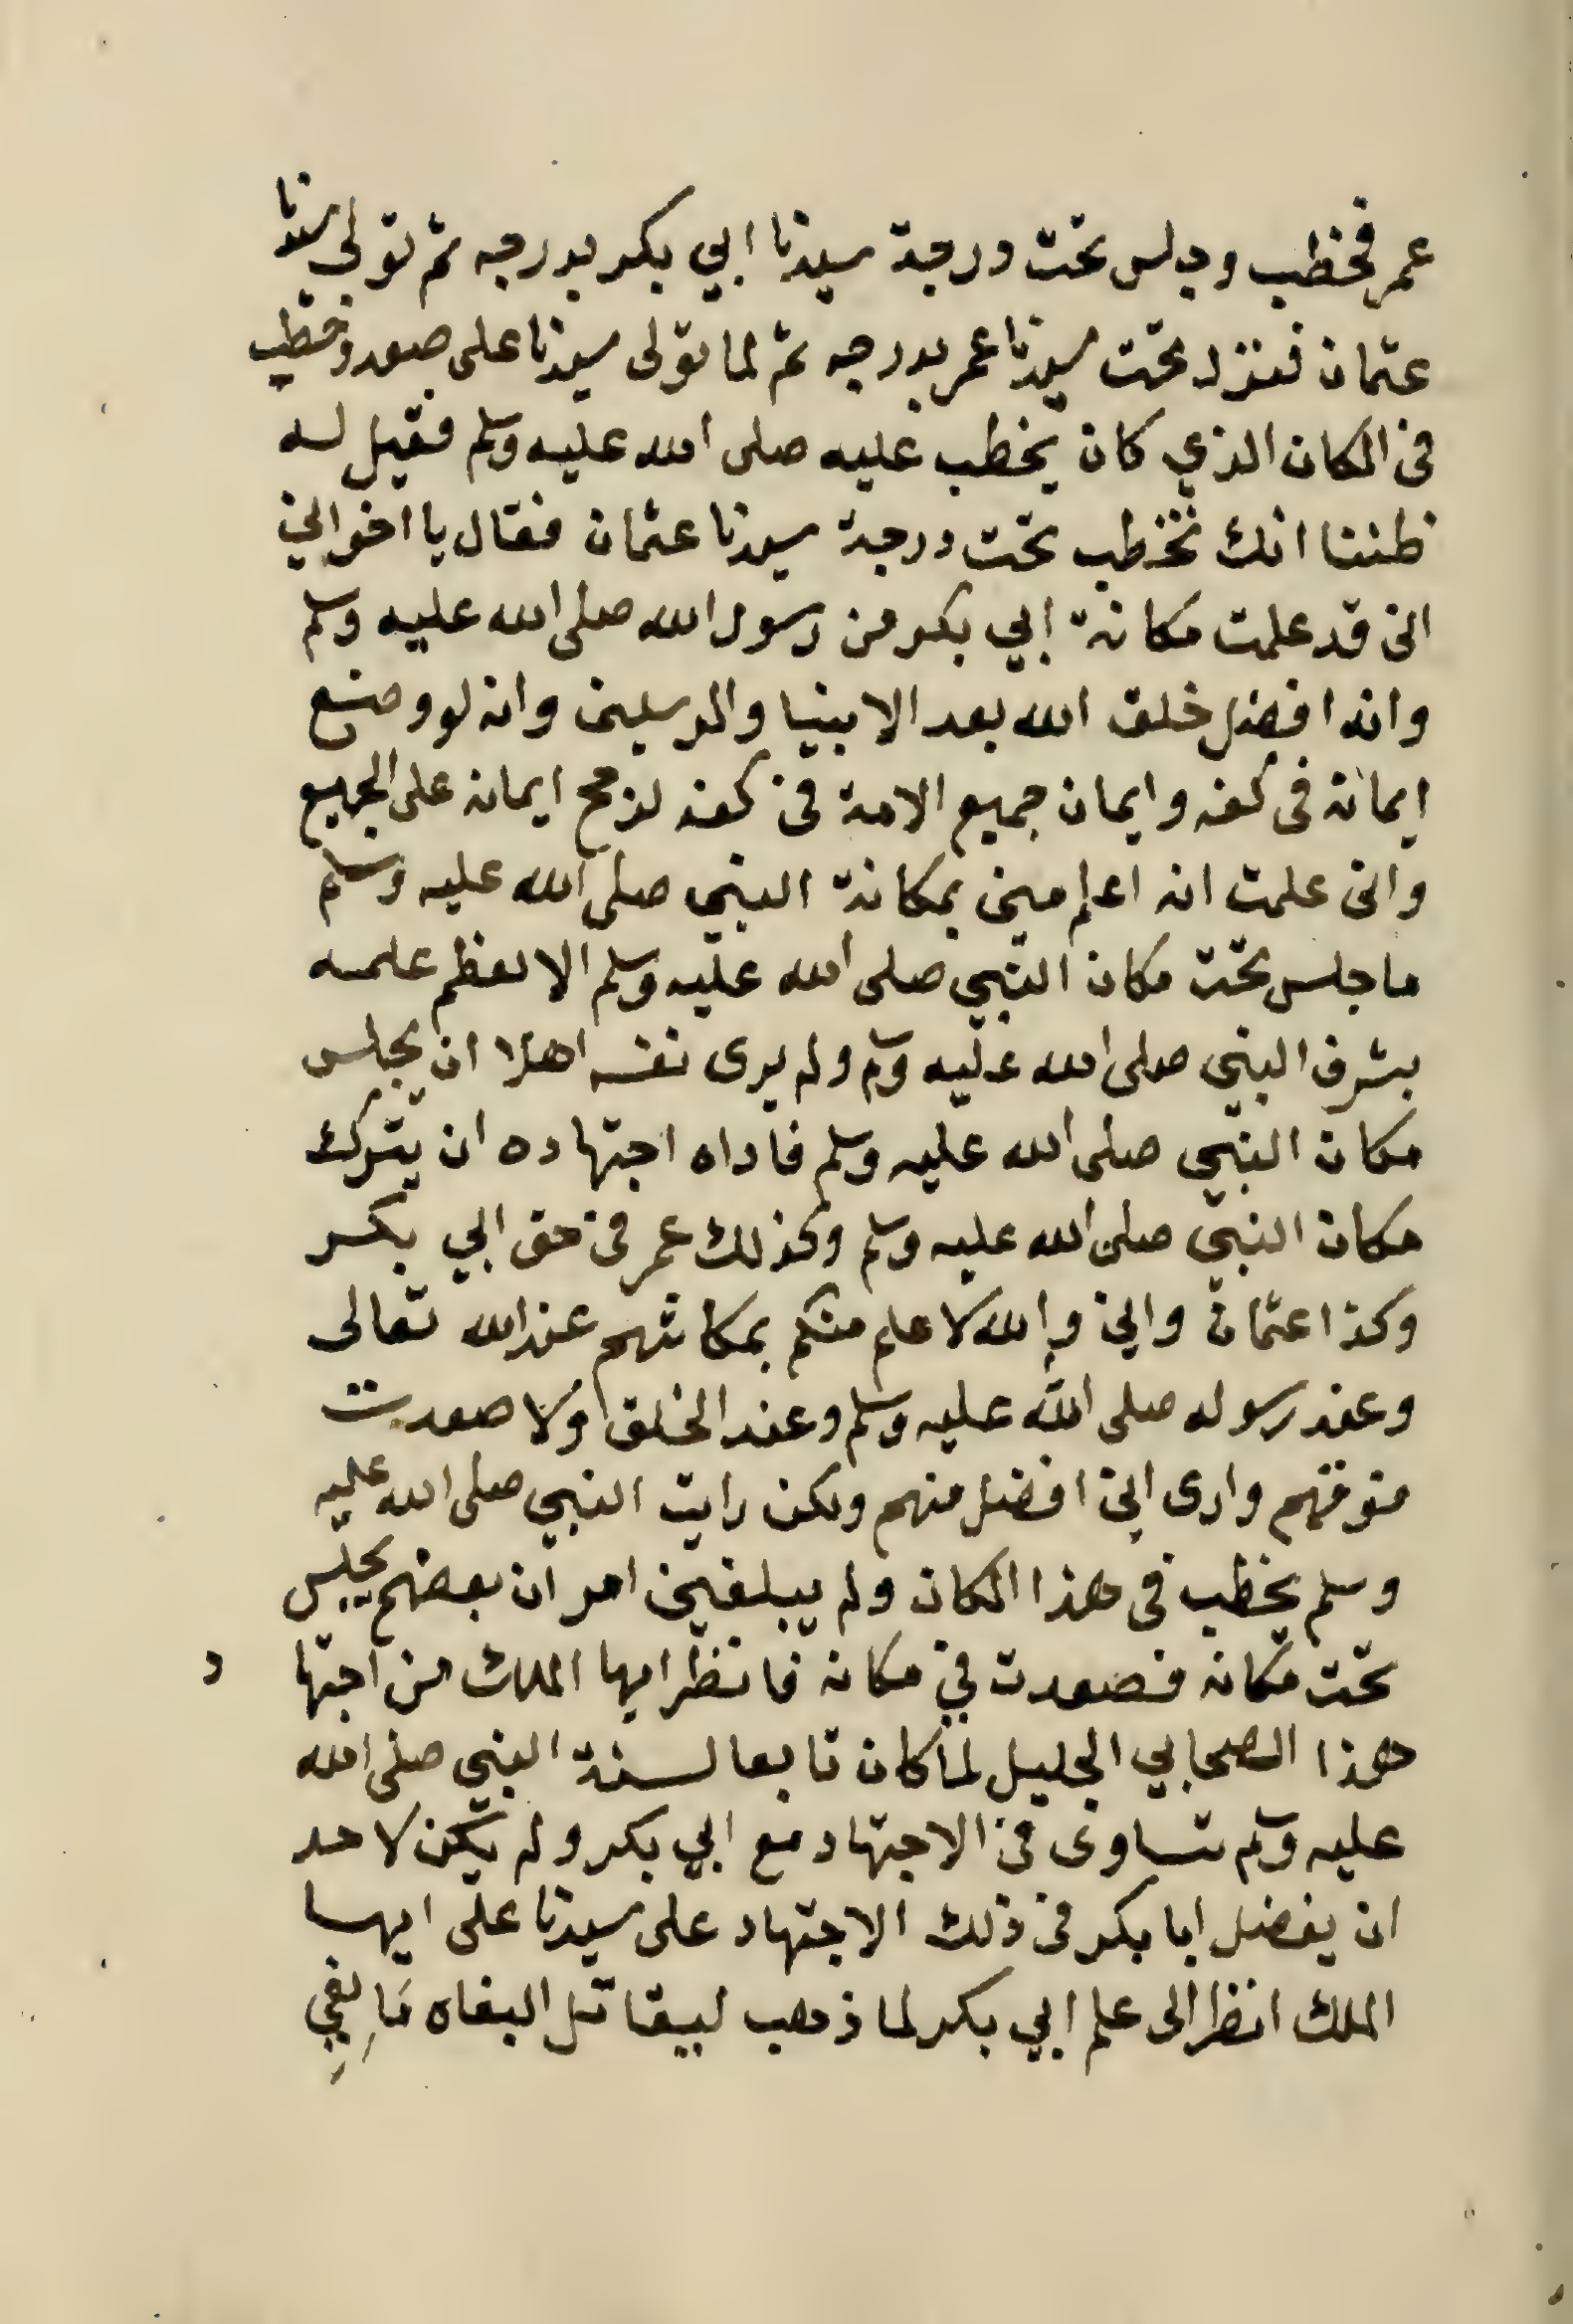 عمر فخطب وجلس تحت درجة سيدنا ابي بكر بدرجه ثم تولى سيدنا
عثمان فنزل تحت سيدنا عمر بدرجه ثم لما تولى سيدنا على صعد وخطب
فى المكان الذي كان يخطب عليه صلى الله عليه وسلم فقيل له
ظننا انك تخطب تحت درجة سيدنا عثمان فقال يا اخواني
انى قد علمت مكانة ابي بكر من رسول الله صلى الله عليه وسلم
وانه افضل خلق الله بعد الانبيا والمرسلين وانه لو وضع
ايمانه فى كفه وايمان جميع الامة فى كفه لرجح ايمانه على الجميع
وانى علمت انه اعلم منى بمكانة النبي صلى الله عليه وسلم
ما جلس تحت مكان النبي صلى الله عليه وسلم الا لعظم علمه
بشرف النبي صلى الله عليه وسلم ولم يرى نفسه اهلا ان يجلس
مكان النبي صلى الله عليه وسلم فاداه اجتهاده ان يترك
مكان النبي صلى الله عليه وسلم وكذلك عمر فى حق ابي بكر
وكذا عثمان واني والله لاعلم منكم بمكانتهم عند الله تعالى
وعند رسوله صلى الله عليه وسلم وعند الخلق ولا صعدت
فوقهم وارى اني افضل منهم ولكن رايت النبي صلى الله عليه
وسلم يخطب فى هذا المكان ولم يبلغني امر ان بعضهم يجلس
تحت مكانه فصعدت في مكانه فانظر ايها الملك من اجتهاد
هذا الصحابي الجليل لما كان تابعا لسنة النبي صلى الله
عليه وسلم تساوى فى الاجتهاد مع ابي بكر ولم يكن لاحد
ان يفضل ابا بكر فى ذلك الاجتهاد على سيدنا على ايها
الملك انظر الى علم ابي بكر لما ذهب ليقاتل البغاه